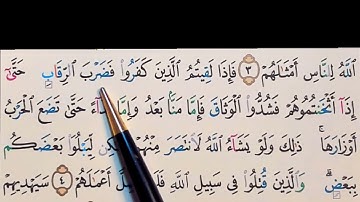 اللَّهُ لِلنَّاسِ أَمْثَٰلَهُمْ ٣ فَإِذَا لَقِيتُمُ الَّذِينَ كَفَرُوا۟ فَضَرْبَ الرِّقَابِ حَتَّىٰٓ
إِذَآ أَثْخَنتُمُوهُمْ فَشُدُّوا۟ الْوَثَاقَ فَإِمَّا مَنًّۢا بَعْدُ وَإِمَّا حَتَّىٰ تَضَعَ الْحَرْبُ
أَوْزَارَهَا ۚ ذَٰلِكَ وَلَوْ يَشَآءُ اللَّهُ لَانتَصَرَ مِنْهُمْ لِّيَبْلُوَا۟ بَعْضَكُم
بِبَعْضٍ ۗ وَالَّذِينَ قُتِلُوا۟ فِي سَبِيلِ اللَّهِ أَعْمَٰلَهُمْ ٤ سَيَهْدِيهِمْ